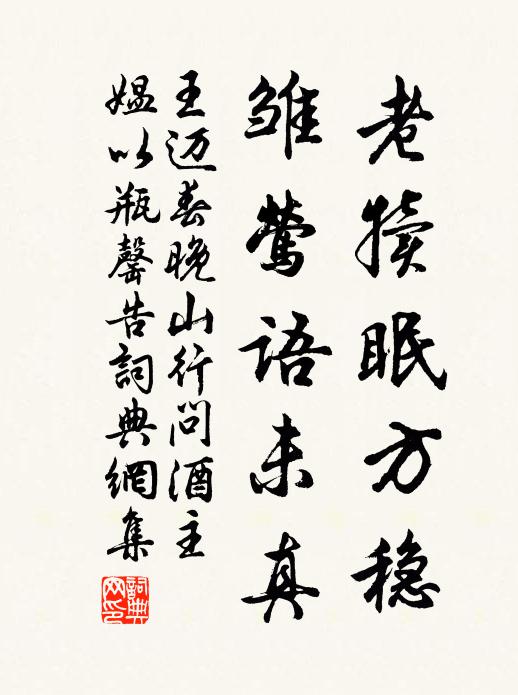 老犊眠方稳
雏莺语未真
王迈春晚山行问酒主
媪以瓶罄告詞典網集
詞典網印